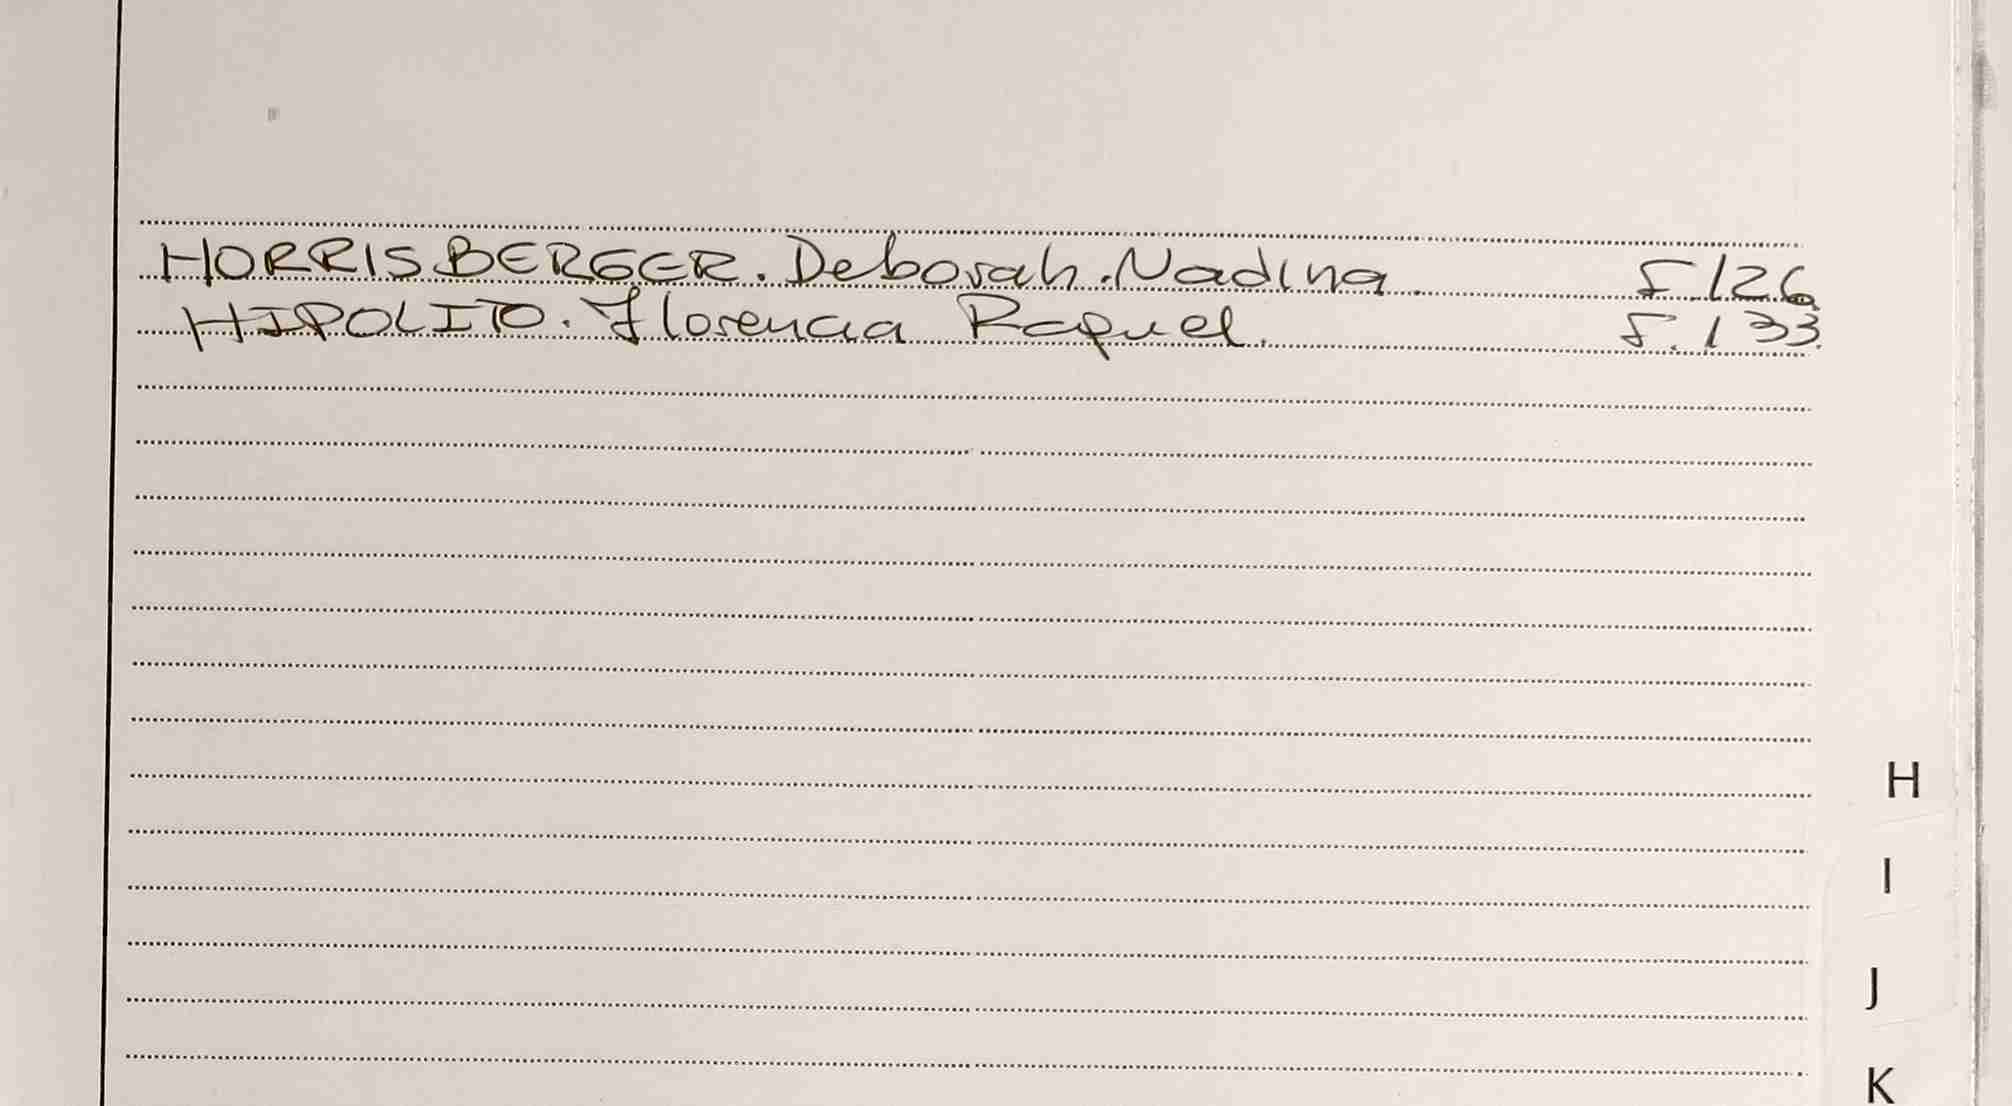 HORRISBERGER. Deborah. Nadina. F. 126
HIPOLITO. Florencia Raquel. F. 133.
H
I
J
K